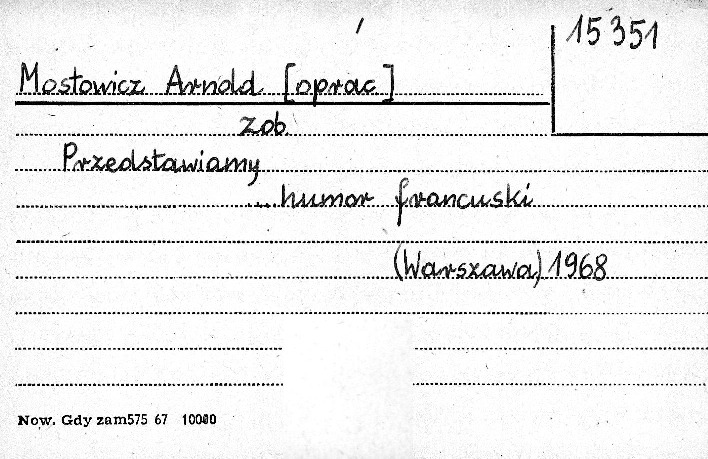 15351
Mostowicz Arnold [oprac]
zob.
Przedstawiamy
... humor francuski
(Warszawa) 1968
Now. Gdy zam575 67 10000